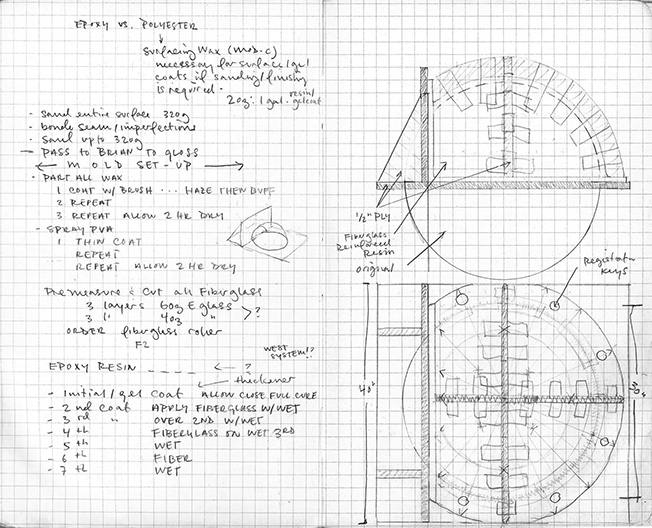 EPOXY VS. POLYESTER
Surfacing Wax (mod. c)
necessary for surface/gel
coats if sanding/finishing
is required.
2oz : 1 gal. resin/
gelcoat
- Sand entire surface 320g
- bondo seam/imperfections
- Sand up to 320g
- PASS TO BRIAN TO GLOSS
MOLD SET-UP
- PART ALL WAX
1 COAT W/ BRUSH ... HAZE THEN BUFF
2 REPEAT
3 REPEAT ALLOW 2 HR DRY
- SPRAY PVA
1 THIN COAT
REPEAT
REPEAT ALLOW 2 HR DRY
Premeasure & Cut all Fiberglass
3 layers 6oz E glass
3 " 4oz "
> ?
ORDER fiberglass roller
F2
WEST
SYSTEM!?
EPOXY RESIN ----- ← ?
thickener
- Initial/gel Coat ALLOW CLOSE FULL CURE
- 2nd Coat APPLY FIBERGLASS W/WET
- 3rd " OVER 2ND W/WET
- 4th FIBERGLASS ON WET 3RD
- 5th WET
- 6th FIBER
- 7th WET
1/2" PLY
Fiberglass
Reinforced
Resin
original
Registration
Keys
40"
30"